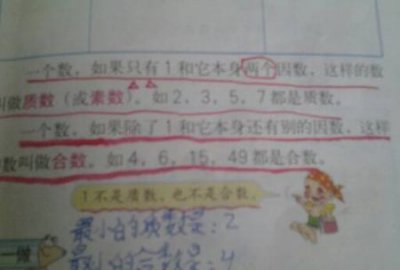 一个数,如果只有1和它本身两个因数,这样的数
叫做质数(或素数)。如2,3,5,7都是质数。
一个数,如果除了1和它本身还有别的因数,这样
数叫做合数,如4,6,15,49都是合数。
1不是质数,也不是合数。
最小的质数是:2
最小的合数是:4
一做